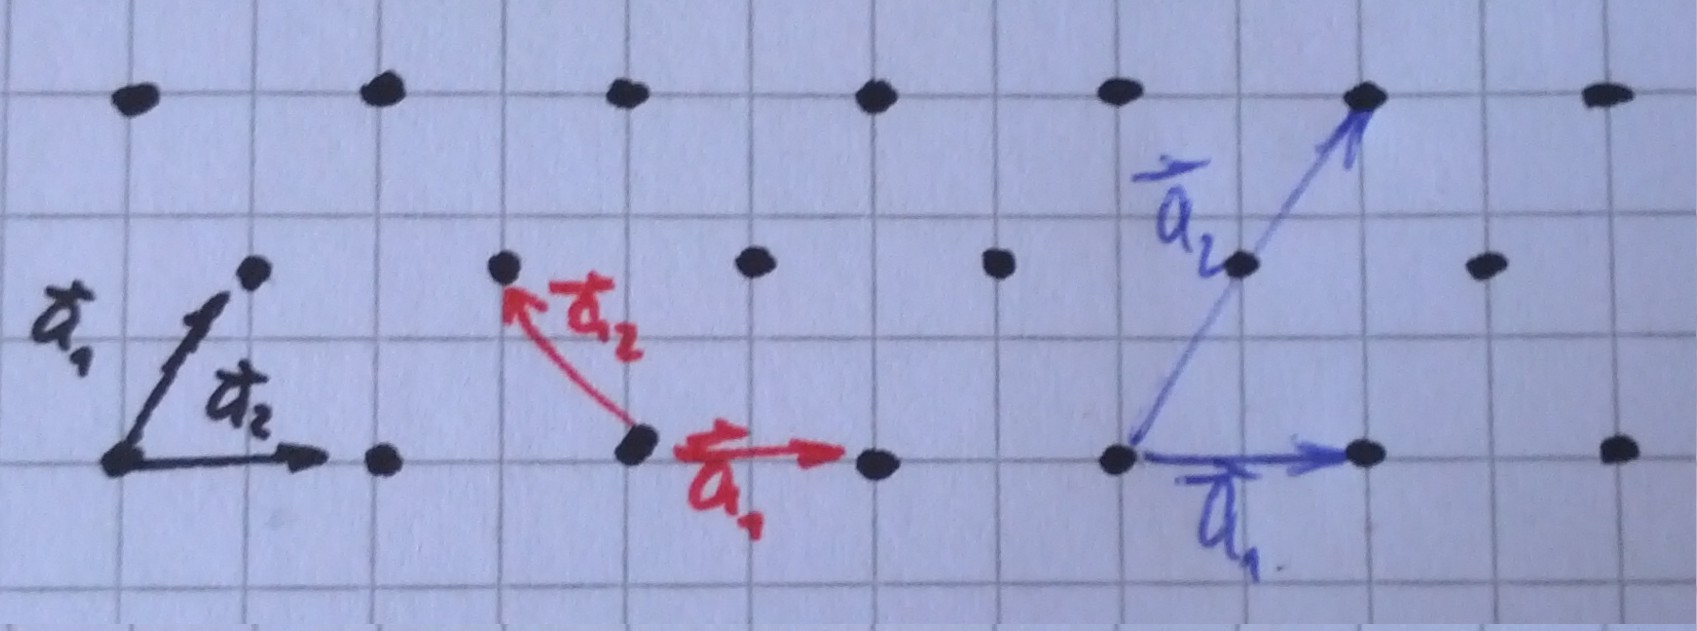 a⃗₁
a⃗₂
a⃗₂
a⃗₁
a⃗₂
a⃗₁